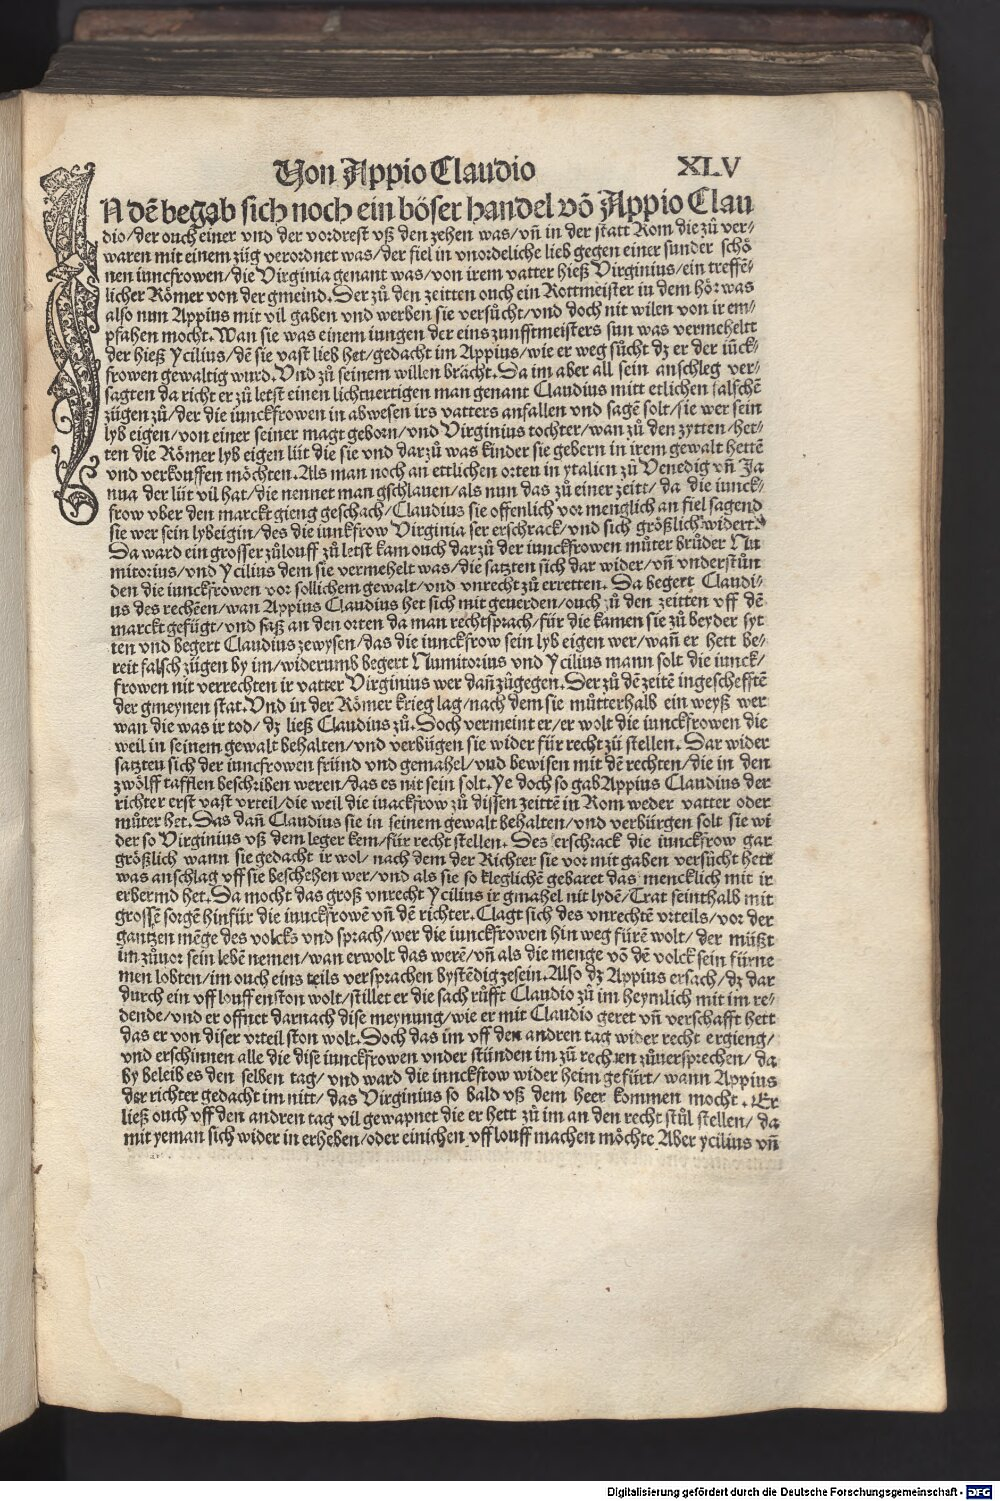 Von Appio Claudio XLV
IN dē begab sich noch ein böser handel vō Appio Clau
dio/der ouch einer vnd der vordrest vß den zehen was/vñ in der statt Rom die zů ver-
waren mit einem züg verordnet was/der fiel in vnordeliche lieb gegen einer sunder schö
nen iuncfrowen/die Virginia genant was/von irem vatter hieß Virginius/ein treffē-
licher Römer von der gmeind. Der zů den zeitten ouch ein Rottmeister in dem hör was
also nun Appius mit vil gaben vnd werben sie versůcht/vnd doch nit wilen von ir em-
pfahen mocht. Wan sie was einem iungen der eins zunfftmeisters sun was vermeheltt
der hieß Ycilius/dē sie vast lieb het/gedacht im Appius/wie er weg sůcht dz er der iūck-
frowen gewaltig wurd. Vnd zů seinem willen brächt. Da im aber all sein anschleg ver-
sagten da richt er zů letst einen lichtuertigen man genant Claudius mitt etlichen falschē
zügen zů/der die iunckfrowen in abwesen irs vatters anfallen vnd sagē solt/sie wer sein
lyb eigen/von einer seiner magt geborn/vnd Virginius tochter/wan zů den zytten/het-
ten die Römer lyb eigen lüt die sie vnd darzů was kinder sie gebern in irem gewalt hettē
vnd verkouffen möchten. Als man noch an ettlichen orten in ytalien zů Venedig vñ Ja
nua der lüt vil hat/die nennet man gschlauen/als nun das zů einer zeitt/da die iunck-
frow vber den marckt gieng geschach/Claudius sie offenlich vor menglich an fiel sagend
sie wer sein lybeigin/des die iunkfrow Virginia ser erschrack/vnd sich größlich widert.
Da ward ein grosser zůlouff zů letst kam ouch darzů der iunckfrowen můter brůder Nu
mitorius/vnd Ycilius dem sie vermehelt was/die satzten sich dar wider/vñ vnderstůn
den die iunckfrowen vor sollichem gewalt/vnd vnrecht zů erretten. Da begert Claudi-
us des rechēen/wan Appius Claudius het sich mit geuerden/ouch zů den zeitten vff dē
marckt gefügt/vnd saß an den orten da man rechtsprach/für die kamen sie zů beyder syt
ten vnd begert Claudius zewysen/das die iunckfrow sein lyb eigen wer/wañ er hett be-
reit falsch zügen by im/widerumb begert Numitorius vnd Ycilius mann solt die iunck/
frowen nit verrechten ir vatter Virginius wer dañ zůgegen. Der zů dē zeitē ingeschefftē
der gmeynen stat. Vnd in der Römer krieg lag/nach dem sie můtterhalb ein weyß wer
wan die was ir tod/dz ließ Claudius zů. Doch vermeint er/er wolt die iunckfrowen die
weil in seinem gewalt behalten/vnd verbügen sie wider für recht zů stellen. Dar wider
satzten sich der iuncfrowen fründ vnd gemahel/vnd bewisen mit dē rechten/die in den
zwölff tafflen beschriben weren/das es nit sein solt. Ye doch so gab Appius Claudius der
richter erst vast vrteil/die weil die iunckfrow zů dissen zeittē in Rom weder vatter oder
můter het. Das dañ Claudius sie in seinem gewalt behalten/vnd verbürgen solt sie wi
der so Virginius vß dem leger kem/für recht stellen. Des erschrack die iunckfrow gar
größlich wann sie gedacht ir wol/nach dem der Richter sie vor mit gaben versůcht hett
was anschlag vff sie beschehen wer/vnd als sie so kleglichē gebaret das mencklich mit ir
erbermd het. Da mocht das groß vnrecht Ycilius ir gmahel nit lydē/Trat seinthalb mit
grossē sorgē hinfür die iunckfrowē vñ dē richter. Clagt sich des vnrechtē vrteils/vor der
gantzen mēge des volcks vnd sprach/wer die iunckfrowen hin weg fürē wolt/der müßt
im zůuor sein lebē nemen/wan er wolt das werē/vñ als die menge vō dē volck sein fürne
men lobten/im ouch eins teils versprachen bystēdig zesein. Also dz Appius ersach/dz dar
durch ein vfflouff enston wolt/stillet er die sach růfft Claudio zů im heymlich mit im re-
dende/vnd er offnet darnach dise meynung/wie er mit Claudio geret vñ verschafft hett
das er von diser vrteil ston wolt. Doch das im vff den andren tag wider recht ergieng/
vnd erschinnen alle die dise iunckfrowen vnder stünden im zů rechten zůuersprechen/da
by beleib es den selben tag/vnd ward die iunckfrow wider heim gefürt/wann Appius
der richter gedacht im nitt/das Virginius so bald vß dem heer kommen mocht. Er
ließ ouch vff den andren tag vil gewapnet die er hett zů im an den recht stůl stellen/da
mit yeman sich wider in erheben/oder einichen vfflouff machen möchte Aber ycilius vñ
Digitalisierung gefördert durch die Deutsche Forschungsgemeinschaft - DFG